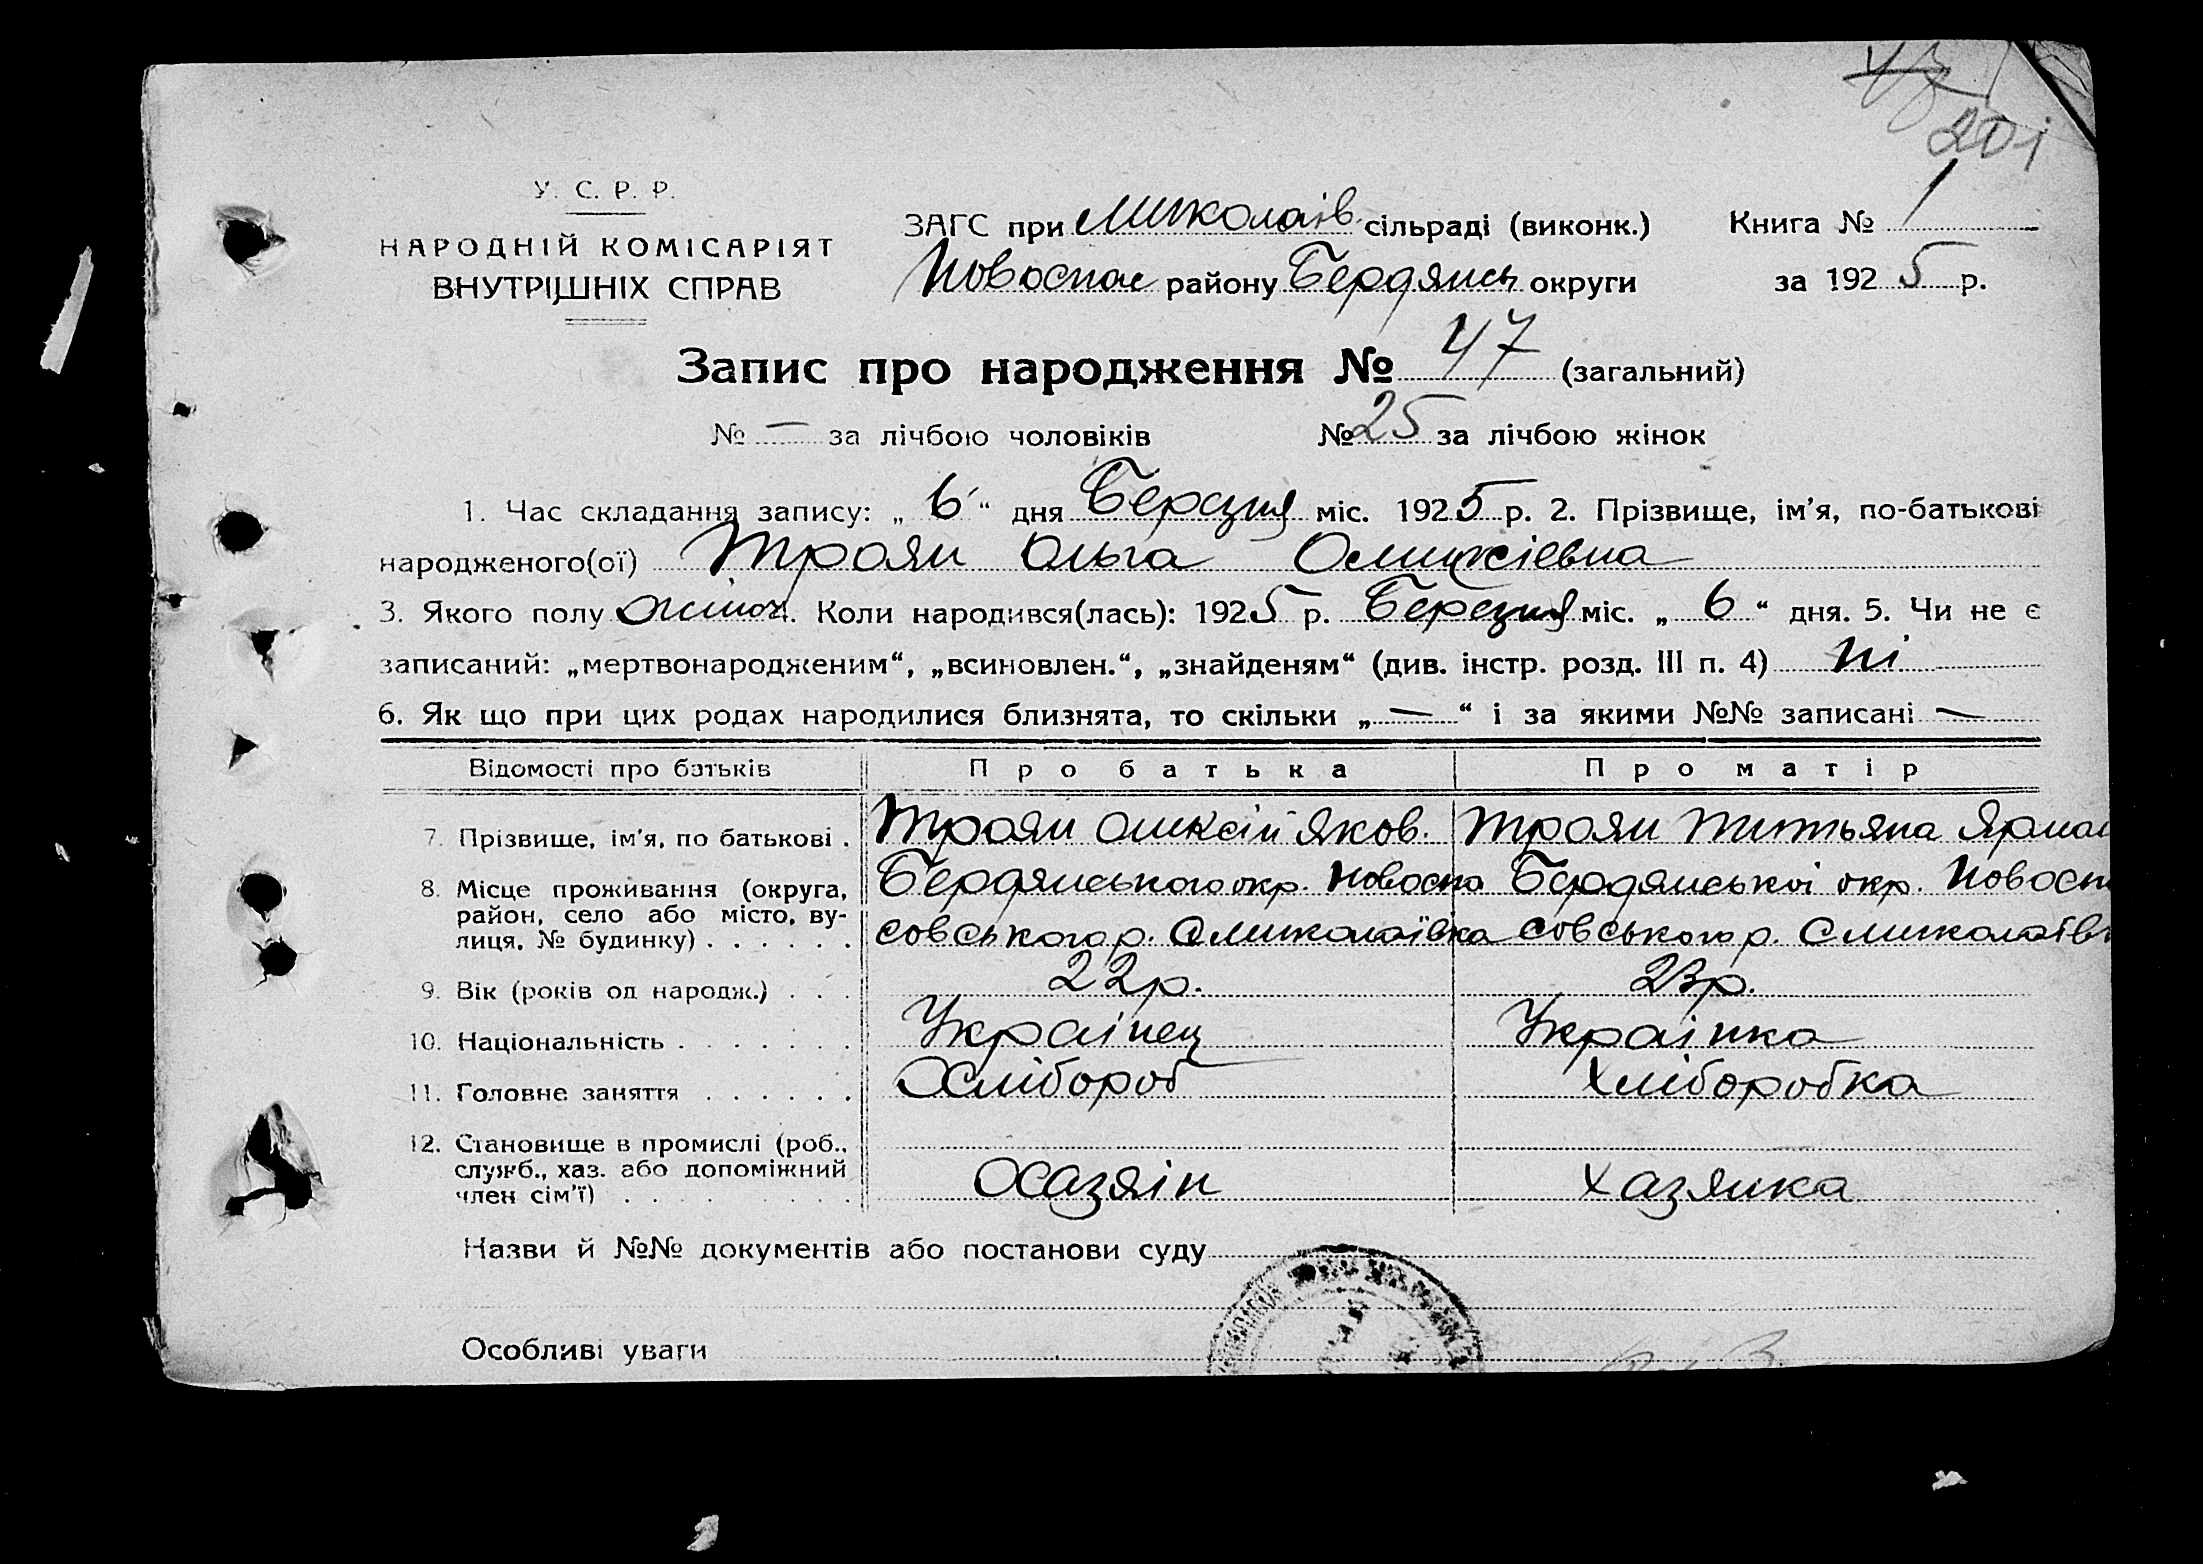 201
У. С. Р. Р.
НАРОДНІЙ КОМІСАРІЯТ
ВНУТРІШНІХ СПРАВ
ЗАГС при Миколаїв. сільраді (виконк.)
Новоспас району Бердянсь округи
Книга № 1
за 1925 р.
Запис про народження № 47 (загальний)
№ — за лічбою чоловіків № 25 за лічбою жінок
1. Час складання запису: „ 6 “ дня Березня міс. 1925 р. 2. Прізвище, ім’я, по-батькові
народженого(ої) Троян Ольга Оликсіевна
3. Якого полу жіноч. Коли народився(лась): 1925 р. Березня міс. „ 6 “ дня. 5. Чи не є
записаний: „мертвонародженим“, „всиновлен.“, „знайденям“ (див. інстр. розд. III п. 4) ні
6. Як що при цих родах народилися близнята, то скільки „ — “ і за якими №№ записані —
Відомості про батьків Про батька Про матір
7. Прізвище, ім’я, по батькові . Троян Оликсій Яков. Троян Титьяна
8. Місце проживання (округа, район, село або місто, ву-
лиця, № будинку) . . . . . .
Бердянського окр. Новоспа
совського р. с Миколаївка
Бердянської окр. Новосп
совського р. с Миколаів
9. Вік (років од народж.) . . . 22 р. 23 р.
10. Національність . . . . . . . Украінец Украінка
11. Головне заняття . . . . . . Хлібороб Хліборобка
12. Становище в промислі (роб.,
служб., хаз. або допоміжний
член сім’ї) . . . . . . . . Хазяін Хазяйка
Назви й №№ документів або постанови суду
Особливі уваги